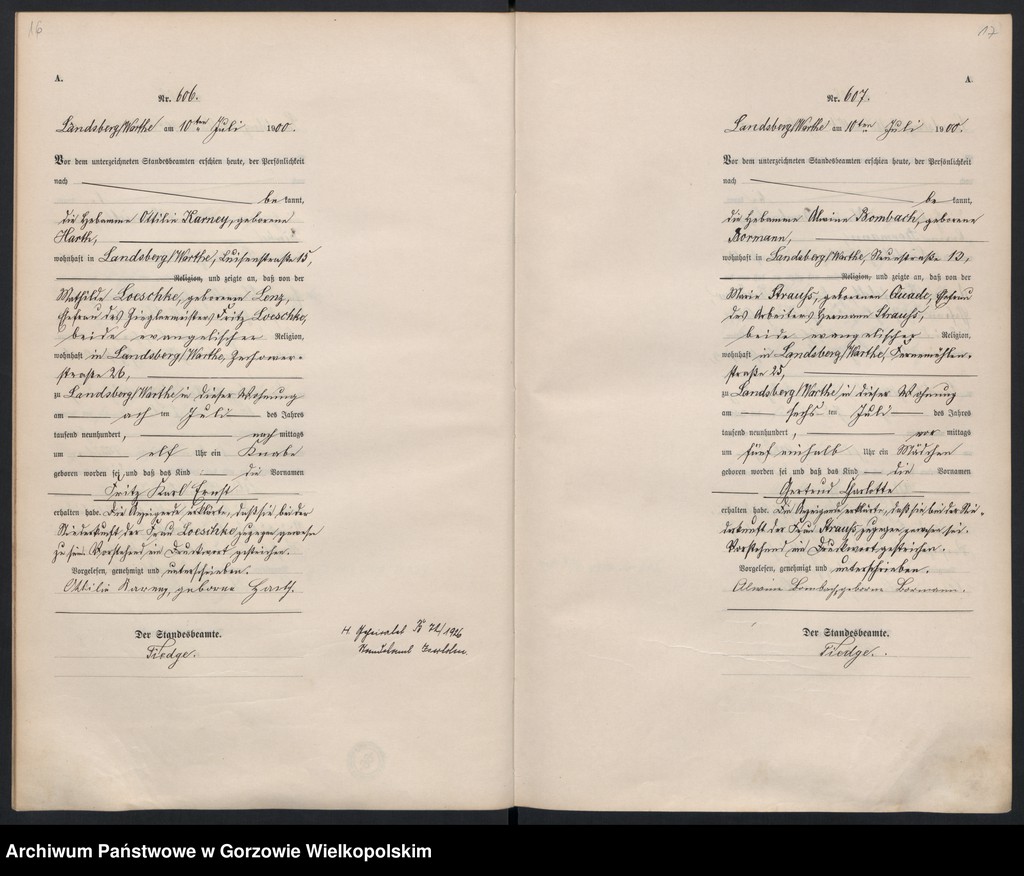 16
A.
Nr. 606.
Landsberg/Warthe am 10ten Juli 1900.
Vor dem unterzeichneten Standesbeamten erschien heute, der Persönlichkeit
nach
be kannt,
die Hebamme Ottilie Karney, geborene
Harth,
wohnhaft in Landsberg/Warthe, Luisenstraße 15,
Religion, und zeigte an, daß von der
Mathilde Loeschke, geborenen Lenz,
Ehefrau des Zieglermeisters Fritz Loeschke,
beide evangelischer Religion,
wohnhaft in Landsberg/Warthe, Zechower-
straße 26,
zu Landsberg/Warthe in dieser Wohnung
am acht ten Juli des Jahres
tausend neunhundert, nach mittags
um elf Uhr ein Knabe
geboren worden sei und daß das Kind die Vornamen
Fritz Karl Ernst
erhalten habe. Die Anzeigende erklärte, daß sie bei der
Niederkunft der Frau Loeschke zugegen gewesen
zu sein. Vorstehend ein Druckwort gestrichen.
Vorgelesen, genehmigt und unterschrieben.
Ottilie Karney, geborne Harth.
Der Standesbeamte.
Tiedge.
H. Geheiratet N 72/1926
Standesamt
17
A
Nr. 607.
Landsberg/Warthe am 10ten Juli 1900.
Vor dem unterzeichneten Standesbeamten erschien heute, der Persönlichkeit
nach
be kannt,
die Hebamme Alwine Bombach, geborene
Bormann,
wohnhaft in Landsberg/Warthe, Neuestraße 12,
Religion, und zeigte an, daß von der
Marie Strauß, geborenen Quade, Ehefrau
des Arbeiters Hermann Strauß,
beide evangelischer Religion,
wohnhaft in Landsberg/Warthe,
straße 25,
zu Landsberg/Warthe in dieser Wohnung
am sechs ten Juli des Jahres
tausend neunhundert, vor mittags
um fünf einhalb Uhr ein Mädchen
geboren worden sei und daß das Kind die Vornamen
Gertrud Charlotte
erhalten habe. Die Anzeigende erklärte, daß sie bei der Nie-
derkunft der Frau Strauß zugegen gewesen sei.
Vorstehend ein Druckwort gestrichen.
Vorgelesen, genehmigt und unterschrieben.
Alwine Bombach, geborne Bormann.
Der Standesbeamte.
Tiedge.
Archiwum Państwowe w Gorzowie Wielkopolskim